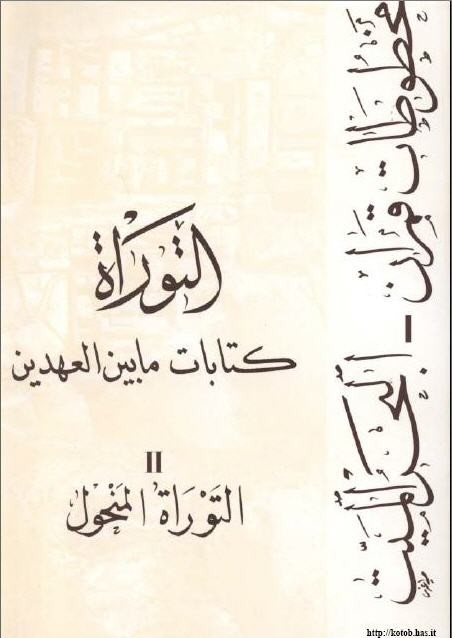 مخطوطات قمران - البحر الميت
التوراة
كتابات ما بين العهدين
II
التَوْرَاةُ المَنْحُول
http://kotob.has.it